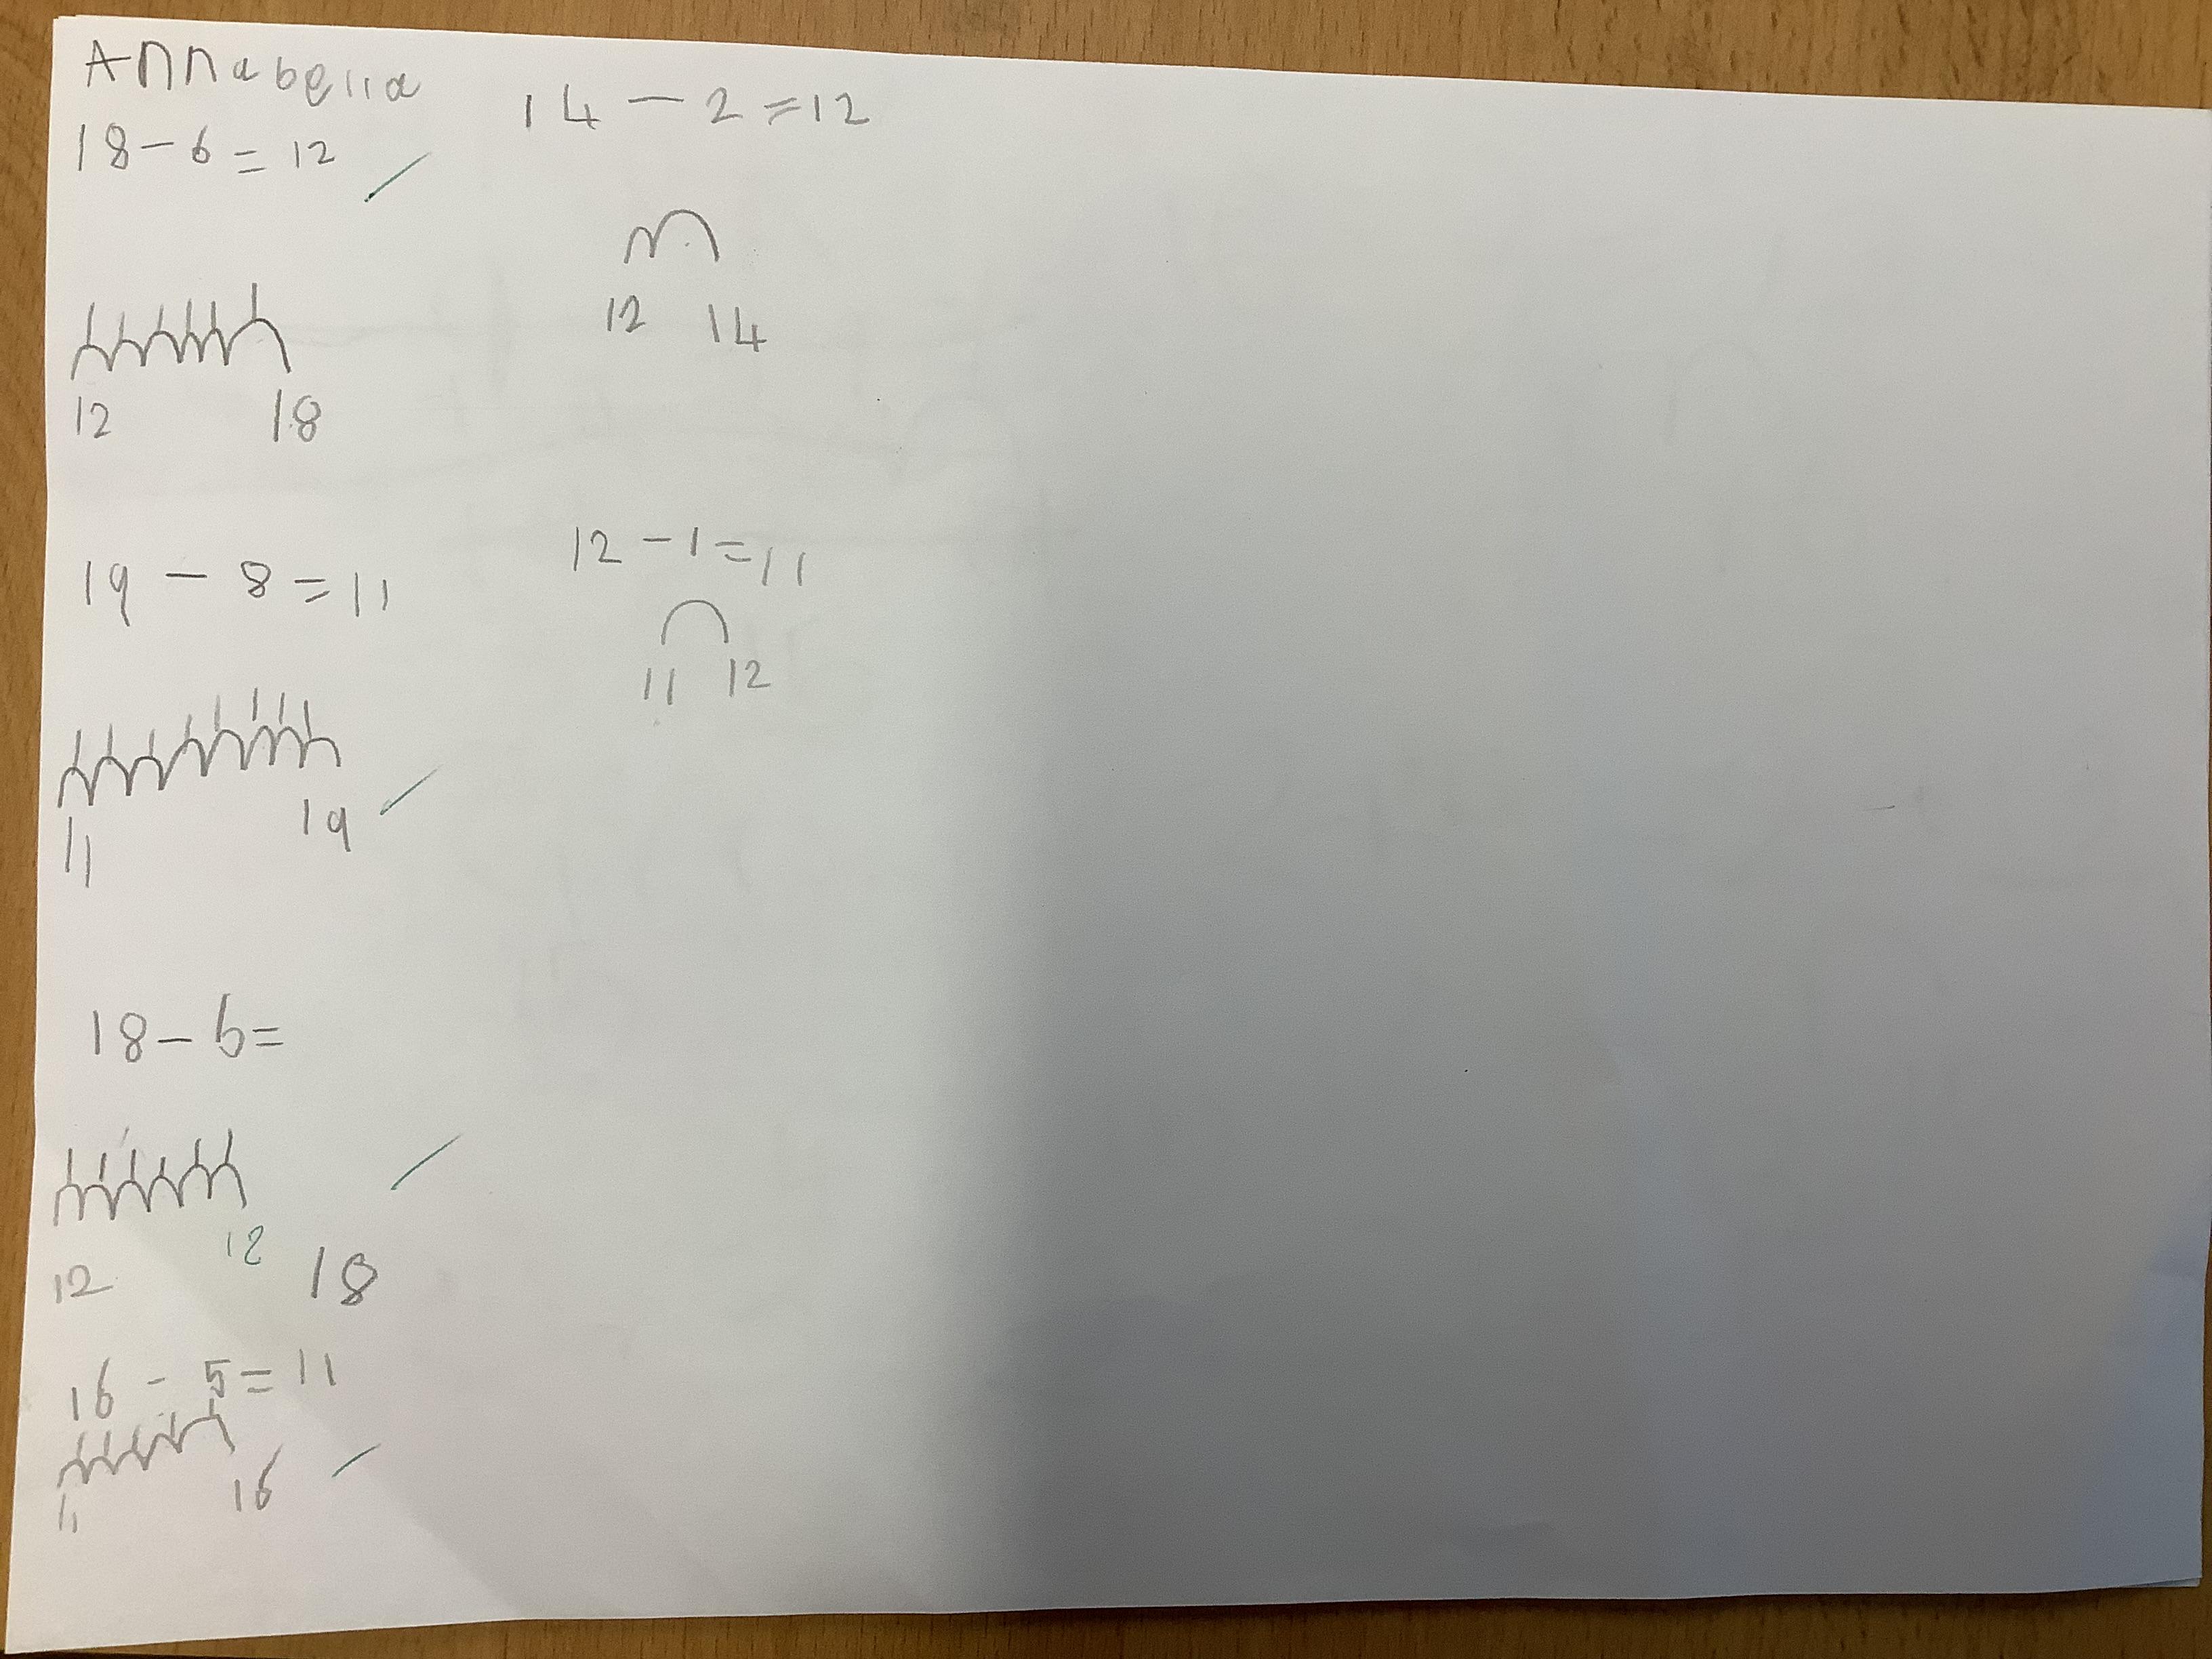 Annabella
18 - 6 = 12
12 18
19 - 8 = 11
11 19
18 - 6 =
12
12 18
16 - 5 = 11
11 16
14 - 2 = 12
12 14
12 - 1 = 11
11 12